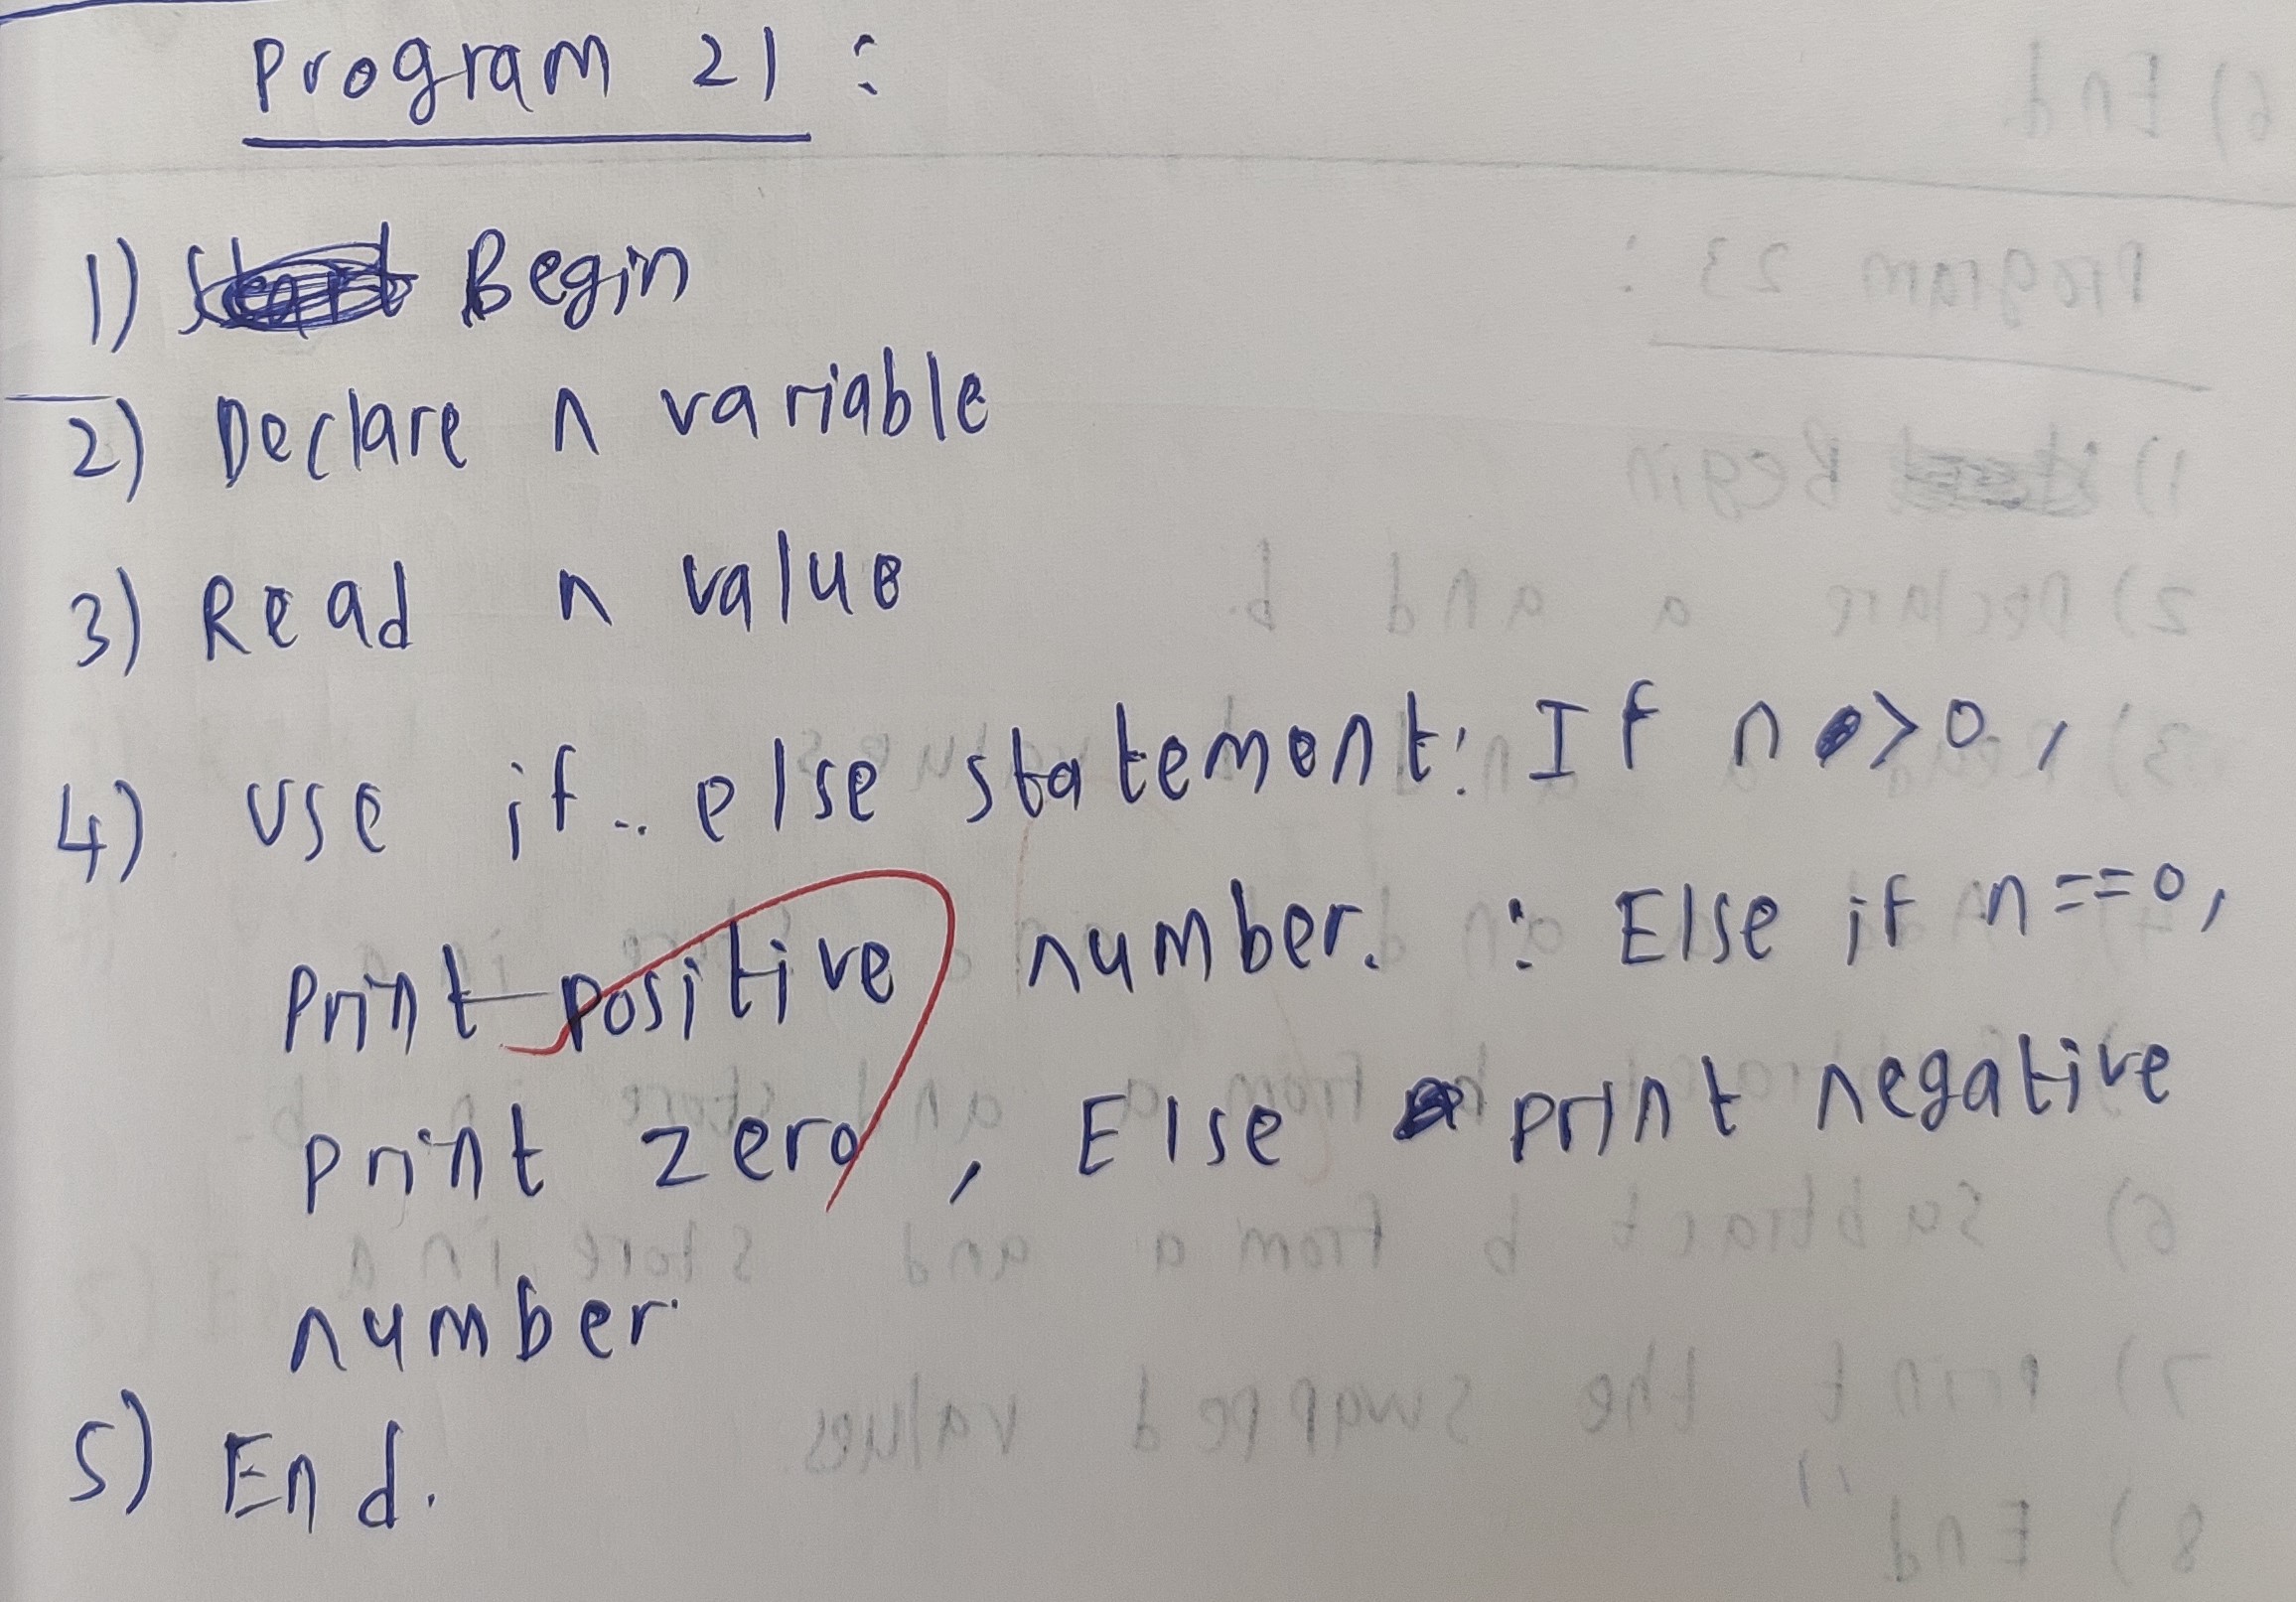 Program 21 :
1) Begin
2) Declare n variable
3) Read n value
4) Use if .. else statement: If n > 0,
Print positive number. : Else if n == 0,
print zero, Else print negative
number.
5) End.